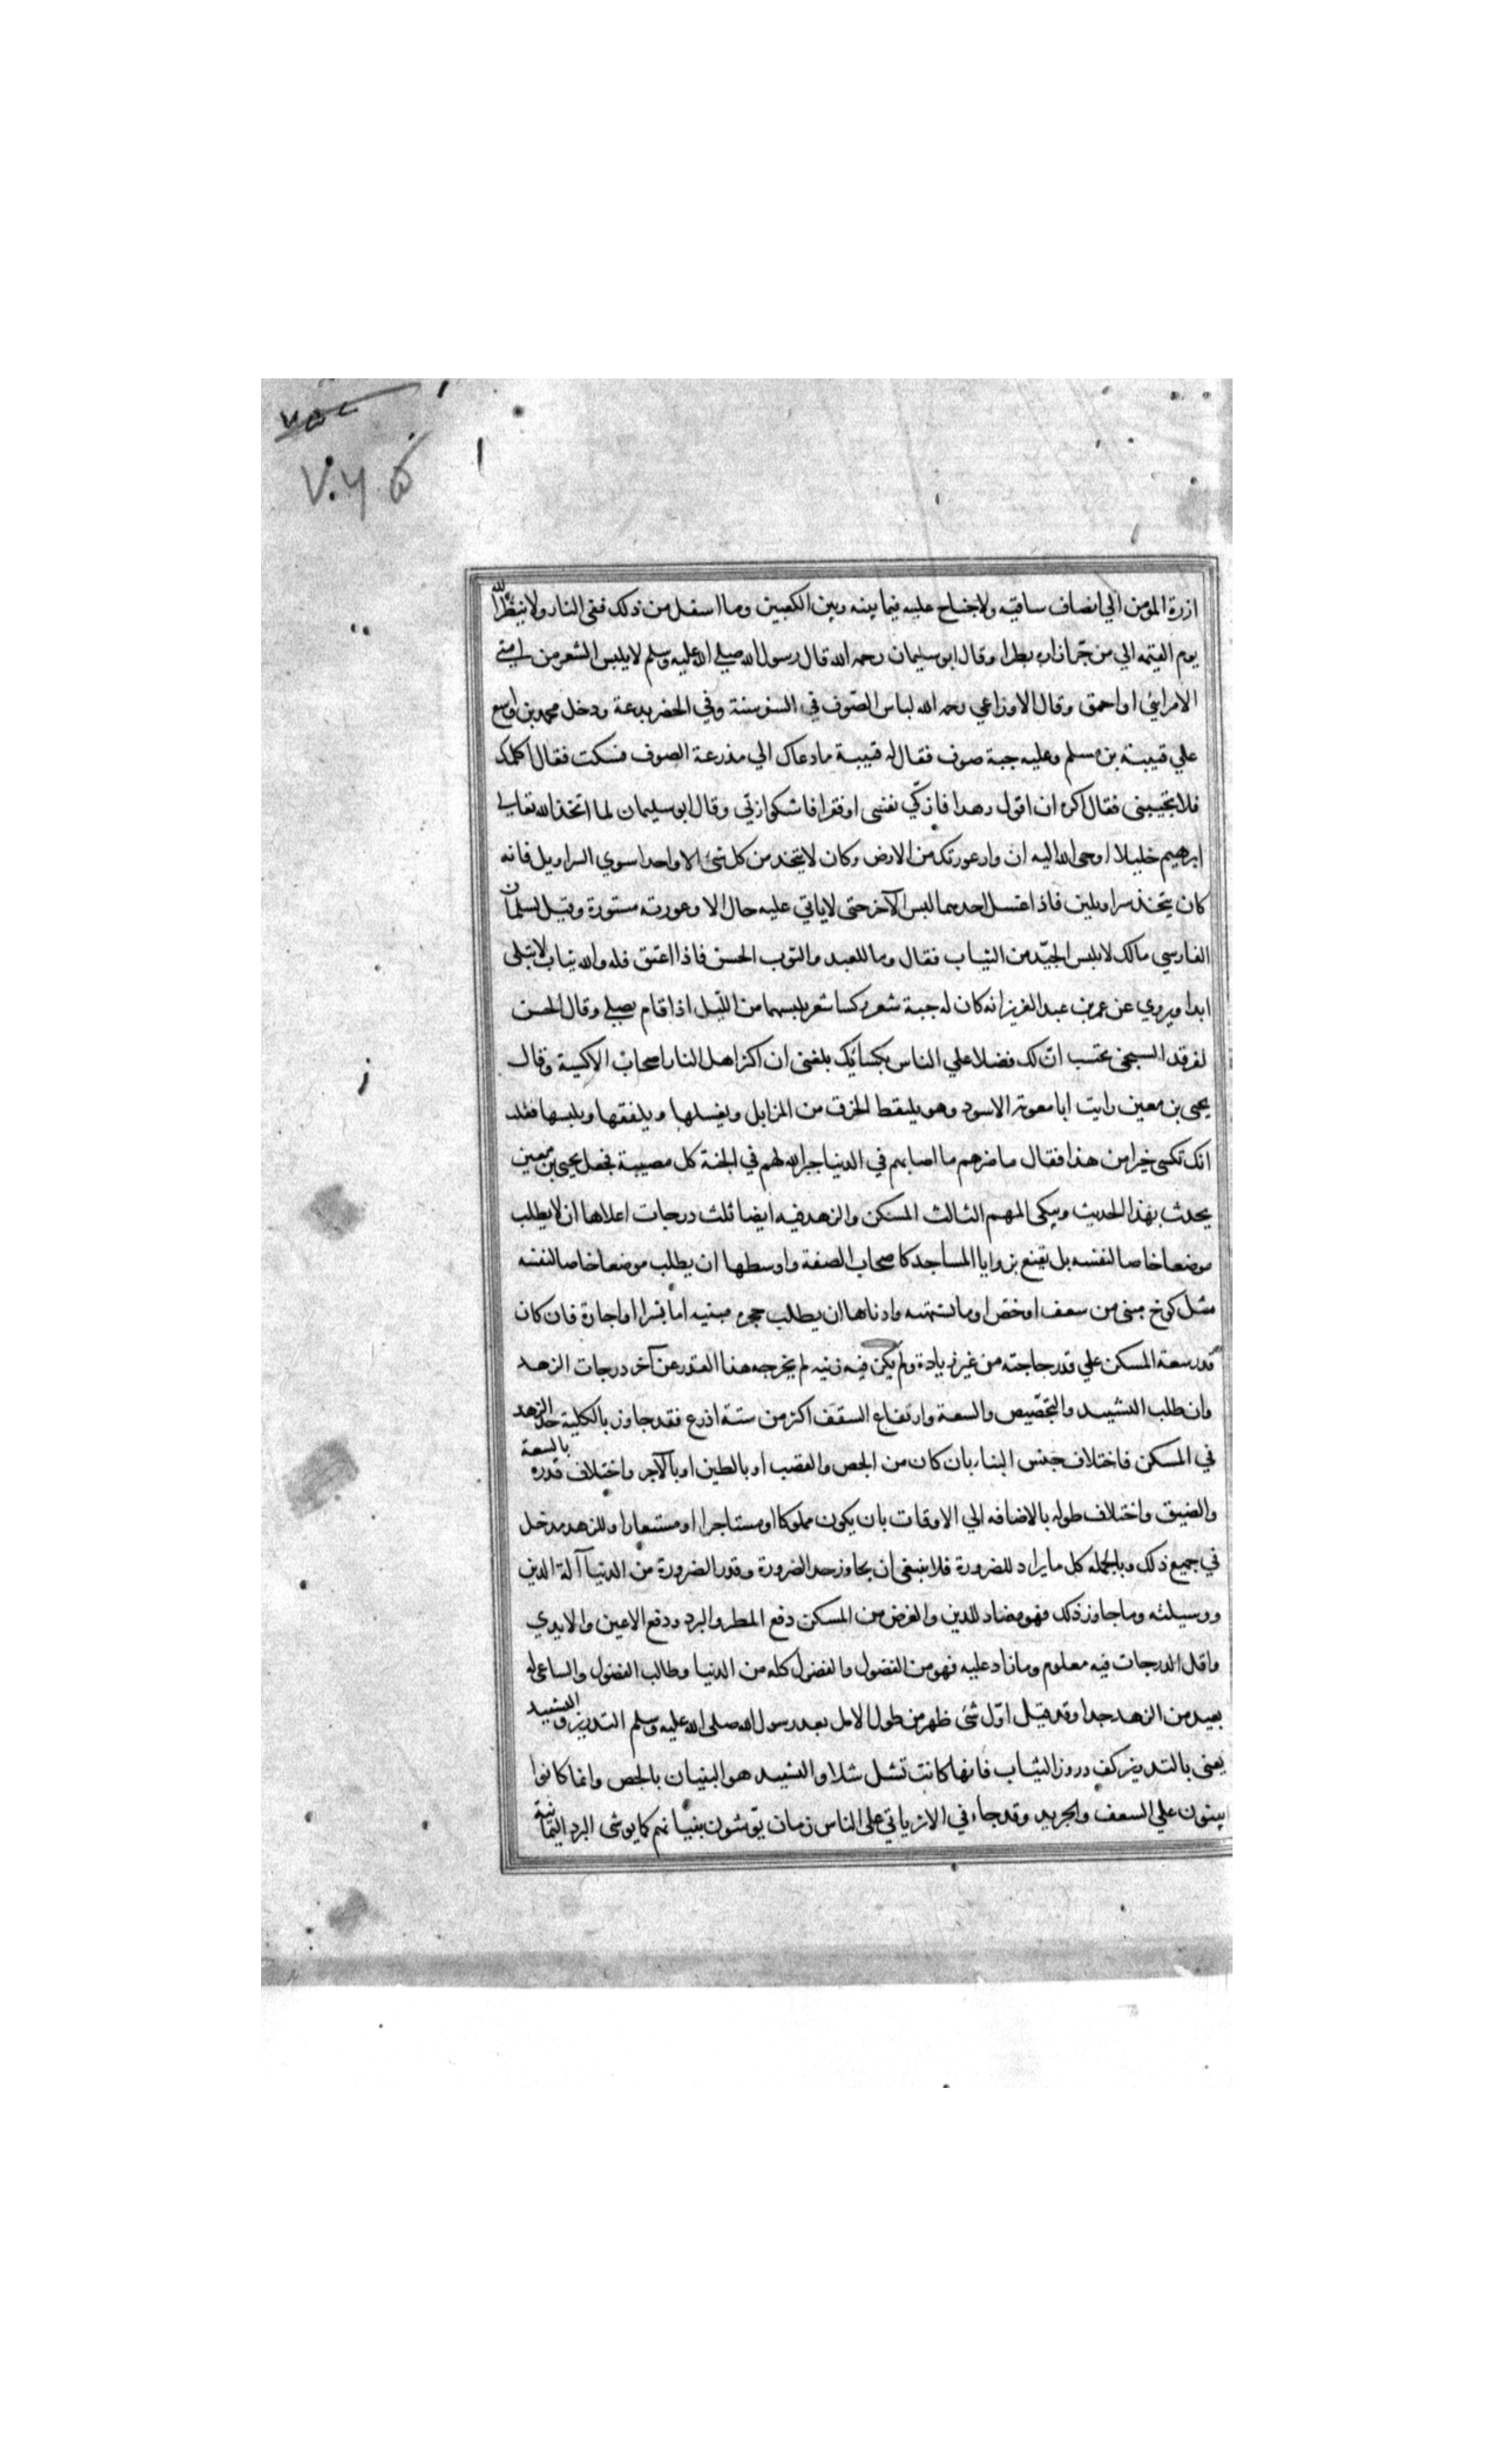 ازرة المؤمن الي انصاف ساقيه ولا جناح عليه فيما بينه وبين الكعبين وما اسفل من ذلك ففي النار ولا ينظر الله
يوم القيمه الي من جر ازاره بطرا وقال ابو سليمان رحمه الله قال رسول الله صلي الله عليه وسلم لا يلبس الشعر من امتي
الا مرائي او احمق وقال الاوزاعي رحمه الله لباس الصوف في السفر سنة وفي الحضر بدعة ودخل محمد بن واسع
علي قتيبة بن مسلم وعليه جبة صوف فقال له قتيبة ما دعاك الي مدرعة الصوف فسكت فقال اكلمك
فلا تجيبني فقال اكره ان اقول زهدا فازكي نفسي او فقرا فاشكو ربي وقال ابو سليمان لما اتخذ الله تعالي
ابرهيم خليلا اوحي الله اليه ان وار عورتك من الارض وكان لا يتخذ من كل شئ الا واحدا سوي السراويل فانه
كان يتخذ سراويلين فاذا غسل احدهما لبس الآخر حتي لا ياتي عليه حال الا وعورته مستورة وقيل لسلمان
الفارسي مالك لا تلبس الجيد من الثياب فقال وما للعبد والثوب الحسن فاذا اعتق فله والله ثياب لا تبلى
ابدا ويروي عن عمر بن عبد العزيز انه كان له جبة شعر وكسا شعر يلبسهما من الليل اذا قام يصلي وقال الحسن
لفرقد السبخي تحسب ان لك فضلا علي الناس بكسائك بلغني ان اكثر اهل النار اصحاب الاكيسة وقال
يحيى بن معين رايت ابا معوية الاسود وهو يلتقط الخرق من المزابل ويغسلها ويلفقها ويلبسها فقلت
انك تكسى خيرا من هذا فقال ما ضرهم ما اصابهم في الدنيا جبر الله لهم في الجنة كل مصيبة فجعل يحيى بن معين
يحدث بهذا الحديث ويبكي المهم الثالث المسكن والزهد فيه ايضا ثلث درجات اعلاها ان لا يطلب
موضعا خاصا لنفسه بل يقنع بزوايا المساجد كاصحاب الصفة واوسطها ان يطلب موضعا خاصا لنفسه
مثل كوخ مبنى من سعف او خص او ما يشبهه وادناها ان يطلب حجرة مبنيه اما بشرا او اجارة فان كان
قدر سعة المسكن علي قدر حاجته من غير زيادة ولم يكن فيه زينه لم يخرجه هذا القدر عن آخر درجات الزهد
وان طلب التشييد والتجصيص والسعة وارتفاع السقف اكثر من ستة اذرع فقد جاوز بالكلية حد الزهد
في المسكن فاختلاف جنس البناء بان كان من الجص والقصب او بالطين او بالآجر واختلاف قدره بالسعة
والضيق واختلاف طوله بالاضافه الي الاوقات بان يكون مملوكا او مستاجرا او مستعارا وللزهد مدخل
في جميع ذلك وبالجمله كل ما يراد للضرورة فلا ينبغي ان يجاوز حد الضرورة وقدر الضرورة من الدنيا آلة الدين
ووسيلته وما جاوز ذلك فهو مضاد للدين والغرض من المسكن دفع المطر والبرد ودفع الاعين والايدي
واقل الدرجات فيه معلوم وما زاد عليه فهو من الفضول والفضول كله من الدنيا وطالب الفضول والساعي له
بعيد من الزهد جدا وقد قيل اول شئ ظهر من طول الامل بعد رسول الله صلى الله عليه وسلم التدريز والتشييد
يعني بالتدريز كف دروز الثياب فانها كانت تشل شلا والتشييد هو البنيان بالجص وانما كانوا
يبنون علي السعف والجريد وقد جاء في الاثر ياتي على الناس زمان يوشون بنيانهم كما يوشى البرد اليمانية